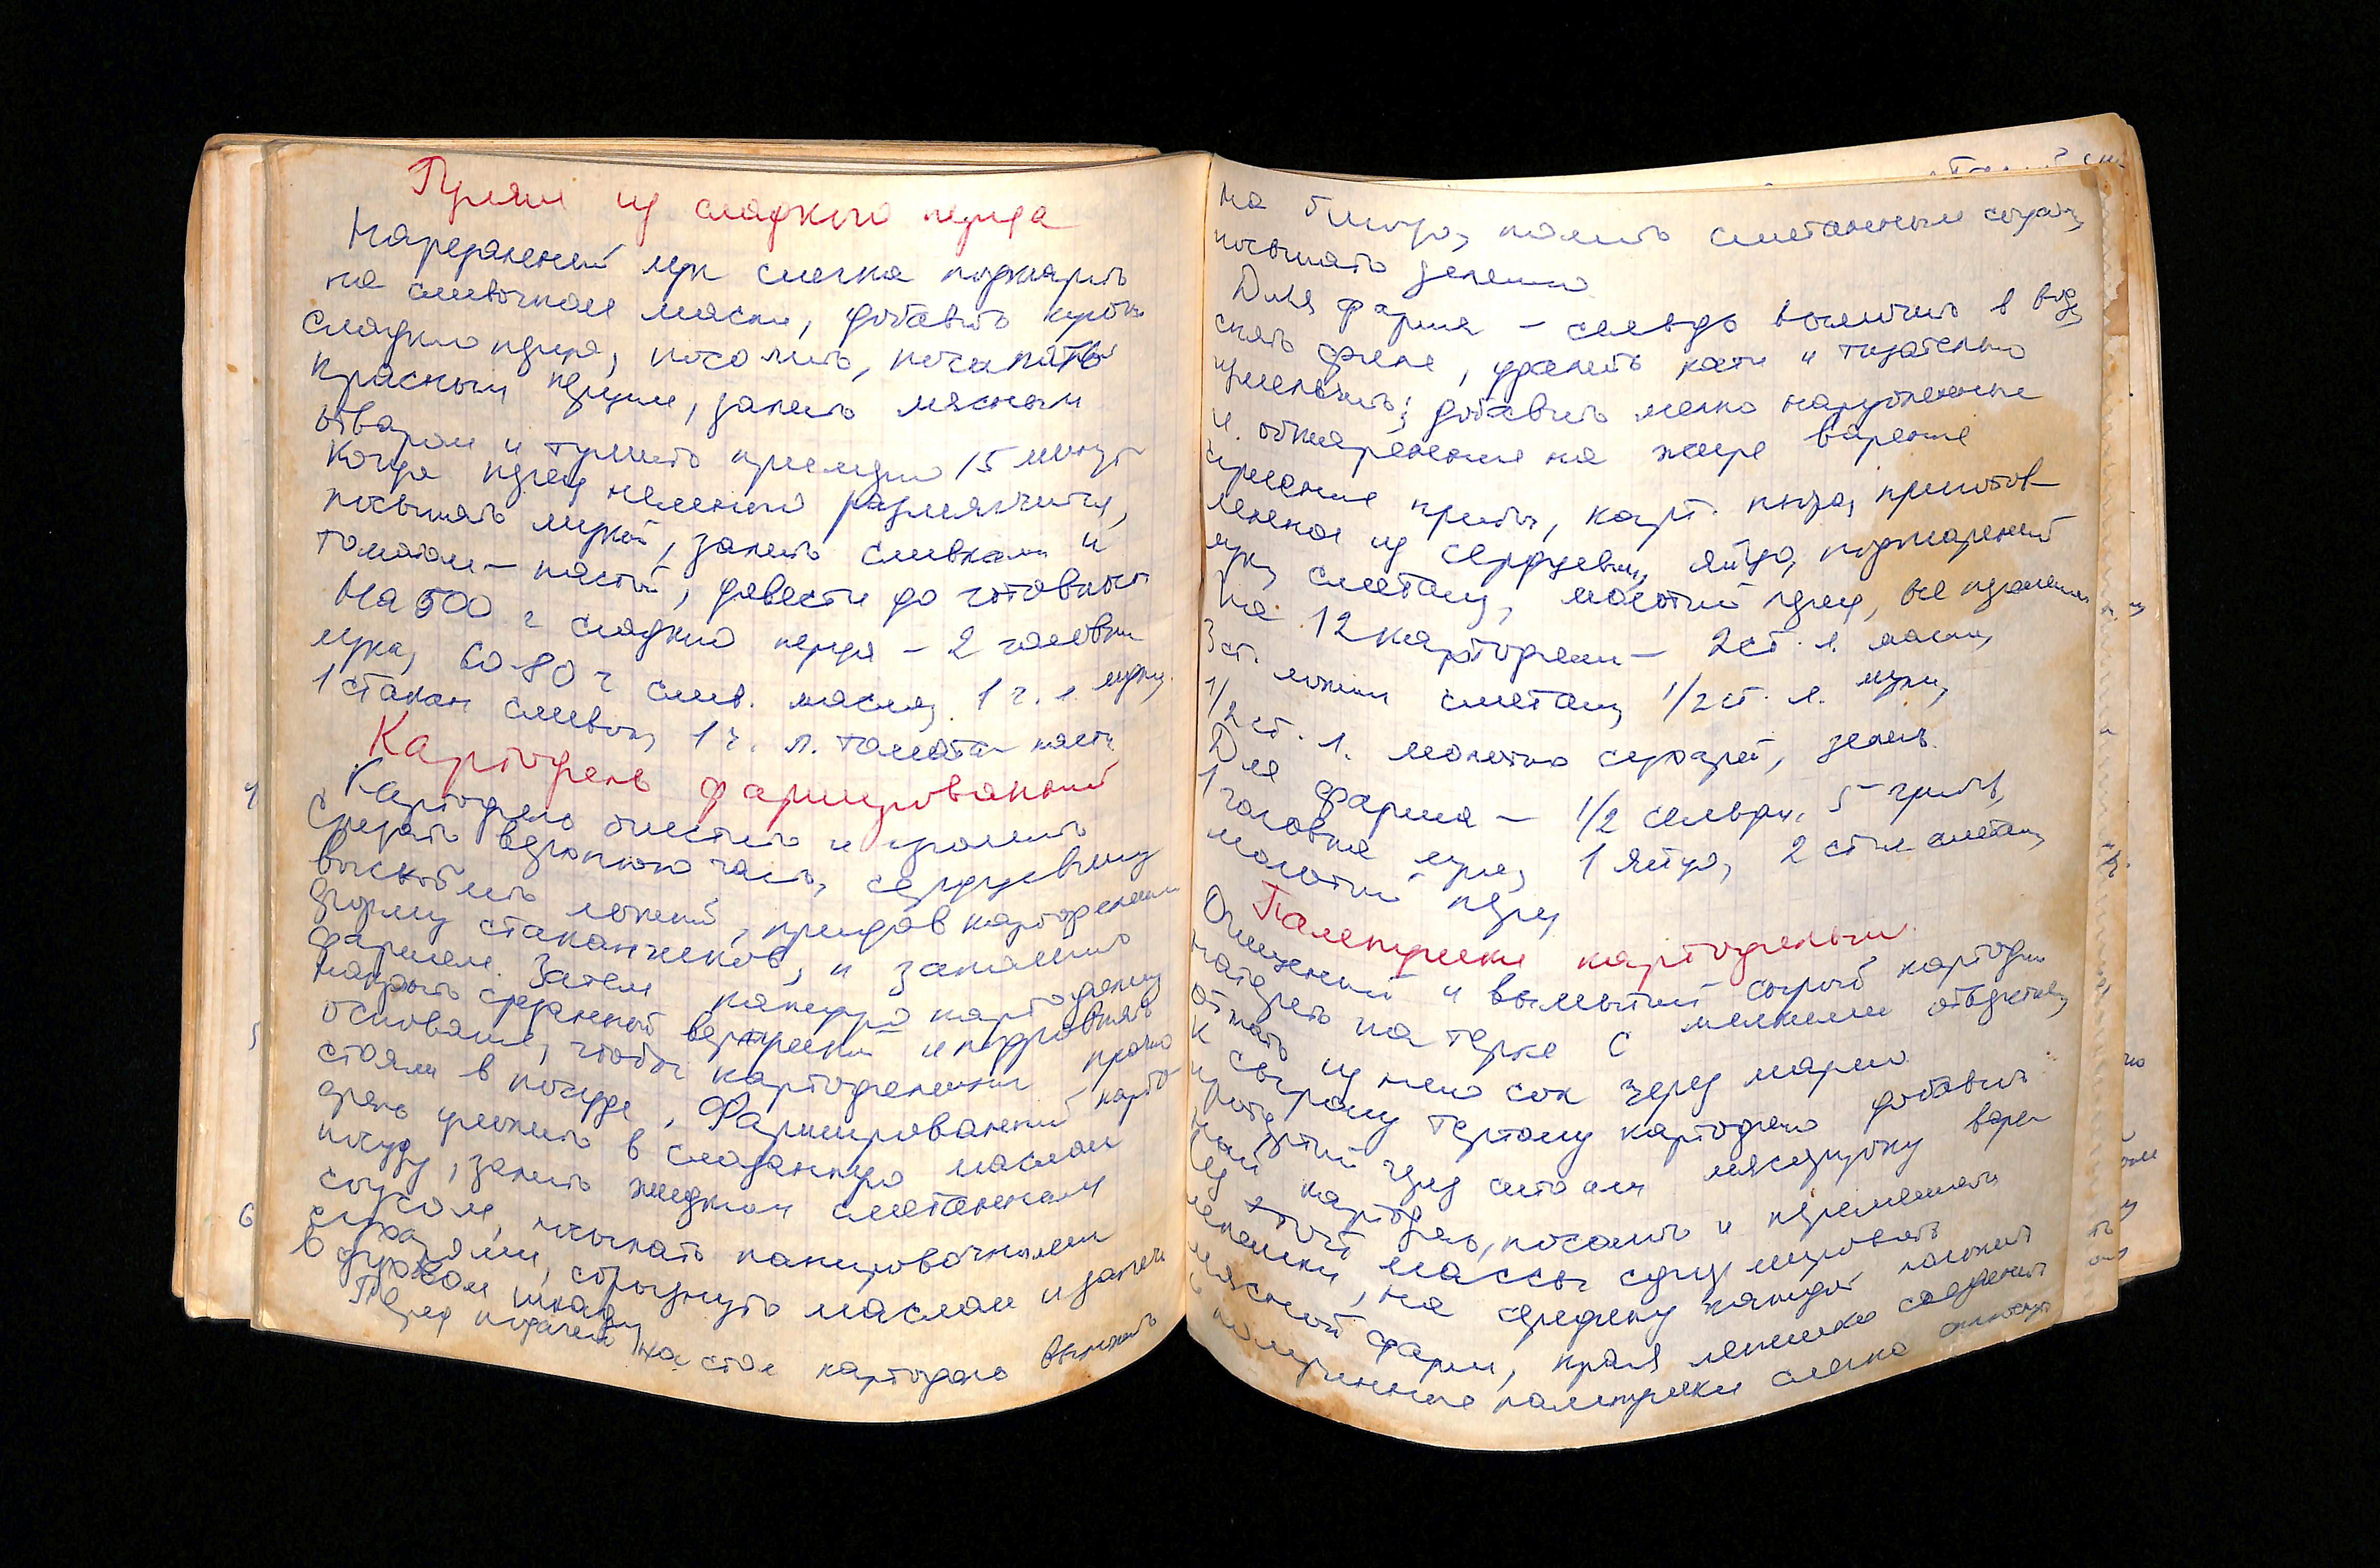 Гуляш из сладкого перца
Нарезанный лук слегка поджарить
на сливочном масле, добавить кусочки
сладкого перца, посолить, посыпать
красным перцем, залить мясным
отваром и тушить примерно 15 минут
Когда перец немного размягчится,
посыпать мукой, залить сливками и
томатом-пастой, довести до готовности
На 500 г сладкого перца – 2 головки
лука, 60-80 г слив. масла, 1 ч. л. муки,
1 стакан сливок, 1 ч. л. томата-пасты
Картофель фаршированный
Картофель очистить и промыть
Срезать верхнюю часть, сердцевину
выскоблить ложкой, придав картофелинам
форму стаканчиков, и заполнить
фаршем. Затем каждую картофелину
накрыть срезанной верхушкой и подровнять
основание, чтобы картофелины прочно
стояли в посуде. Фаршированный карто
фель уложить в смазанную маслом
посуду, залить жидким сметанным
соусом, посыпать панировочными
сухарями, сбрызнуть маслом и запечь
в духовом шкафу
Перед подачей на стол картофель выложить
на блюдо, полить сметанным соусом,
посыпать зеленью
Для фарша – сельдь вымочить в воде
снять филе, удалить кости и тщательно
измельчить; добавить мелко нарубленные
и обжаренные на жире вареные
сушеные грибы, карт. пюре, приготов-
ленное из сердцевин, яйцо, поджаренный
лук, сметану, молотый перец, все перемешать
На 12 картофелин – 2 ст. л. масла,
3 ст. ложки сметаны, 1/2 ст. л. муки,
1/2 ст. л. молотых сухарей, зелень.
Для фарша – 1/2 сельди, 5 грибов,
1 головка лука, 1 яйцо, 2 ст л сметаны,
молотый перец
Галепушки картофельные
Очищенный и вымытый сырой картофель
натереть на терке с мелкими отверстиями,
отжать из него сок через марлю
К сырому тертому картофелю добавить
протертый через сито или мясорубку варе
ный картофель, посолить и перемешать
Из этой массы сформировать
лепешки, на середину каждой положить
мясной фарш, края лепешки соединить